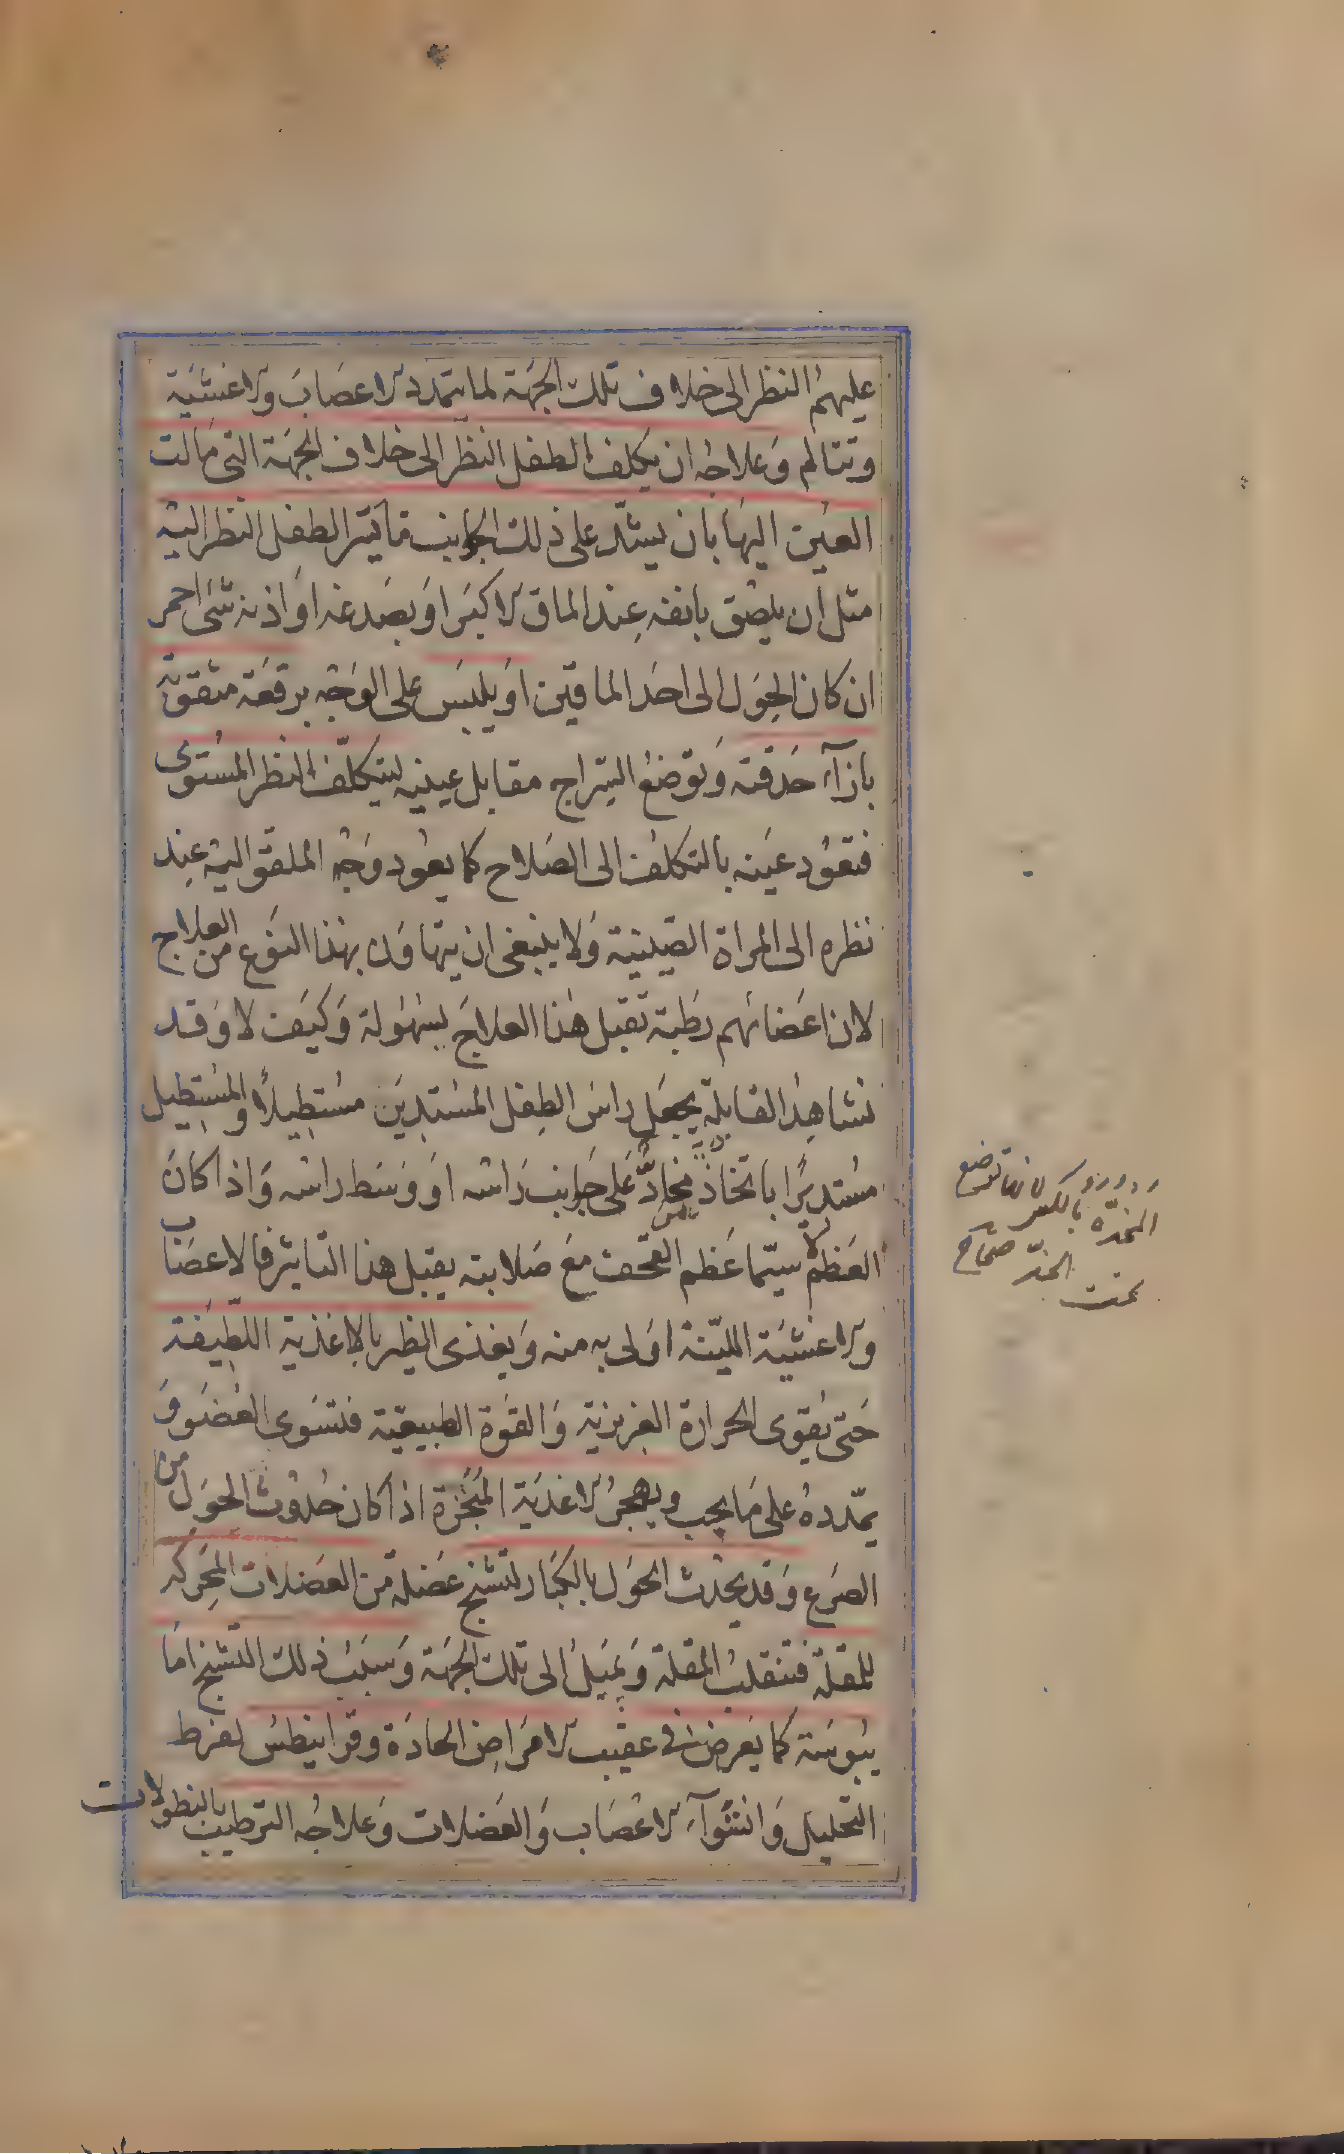 عليهم النظر الى خلاف تلك الجهة لما يتمدد الاعصاب والاغشية
وتتالم وعلاجه ان يكلف الطفل النظر الى خلاف الجهة التى مالت
العين اليها بان يشد على ذلك الجانب ما يكثر الطفل النظر اليه
مثل ان يلصق بانفه عند الماق الاكبر او بصدغه او اذنه شى احمر
ان كان الحول الى احد الماقين او يلبس على الوجه برقعة مثقوبة
بازآء حدقته وتوضع السراج مقابل عينيه ليتكلف النظر المستوى
فتعود عينه بالتكلف الى الصلاح كما يعود وجه الملقو اليه عند
نظره الى المراة الصينية ولا ينبغى ان يتهاون بهذا النوع من العلاج
لان اعضائهم رطبة تقبل هذا العلاج بسهولة وكيف لا وقد
نشاهد القابلة يجعل راس الطفل المستدير مستطيلاً والمستطيل
مستديرًا باتخاذ مخادّ على جوانب راسه او وسط راسه واذا كان
العظم لا سيّما عظم القحف مع صلابته يقبل هذا التاثير فالاعصاب
والاغشية الليّنة اولى به منه ويغذى الظير بالاغذية اللطيفة
حتى يقوى الحرارة الغريزية والقوة الطبيعية فتسوى العضو و
يمدده على ما يجب ويهجر الاغذية المبخرة اذا كان حدوث الحول من
الصرع وقد يحدث الحول بالكبار لتشنج عضلة من العضلات المحركة
للمقلة فتنقلب المقلة ويميل الى تلك الجهة وسبب ذلك التشنج اما
يبوسة كما يعرض فى عقيب الامراض الحادة وقرانيطس لفرط
التحليل وانشوآء الاعصاب والعضلات وعلاجه الترطيب بالنطولات
المخدّة بالكسر لانها توضع
تحت الخدّ صحاح